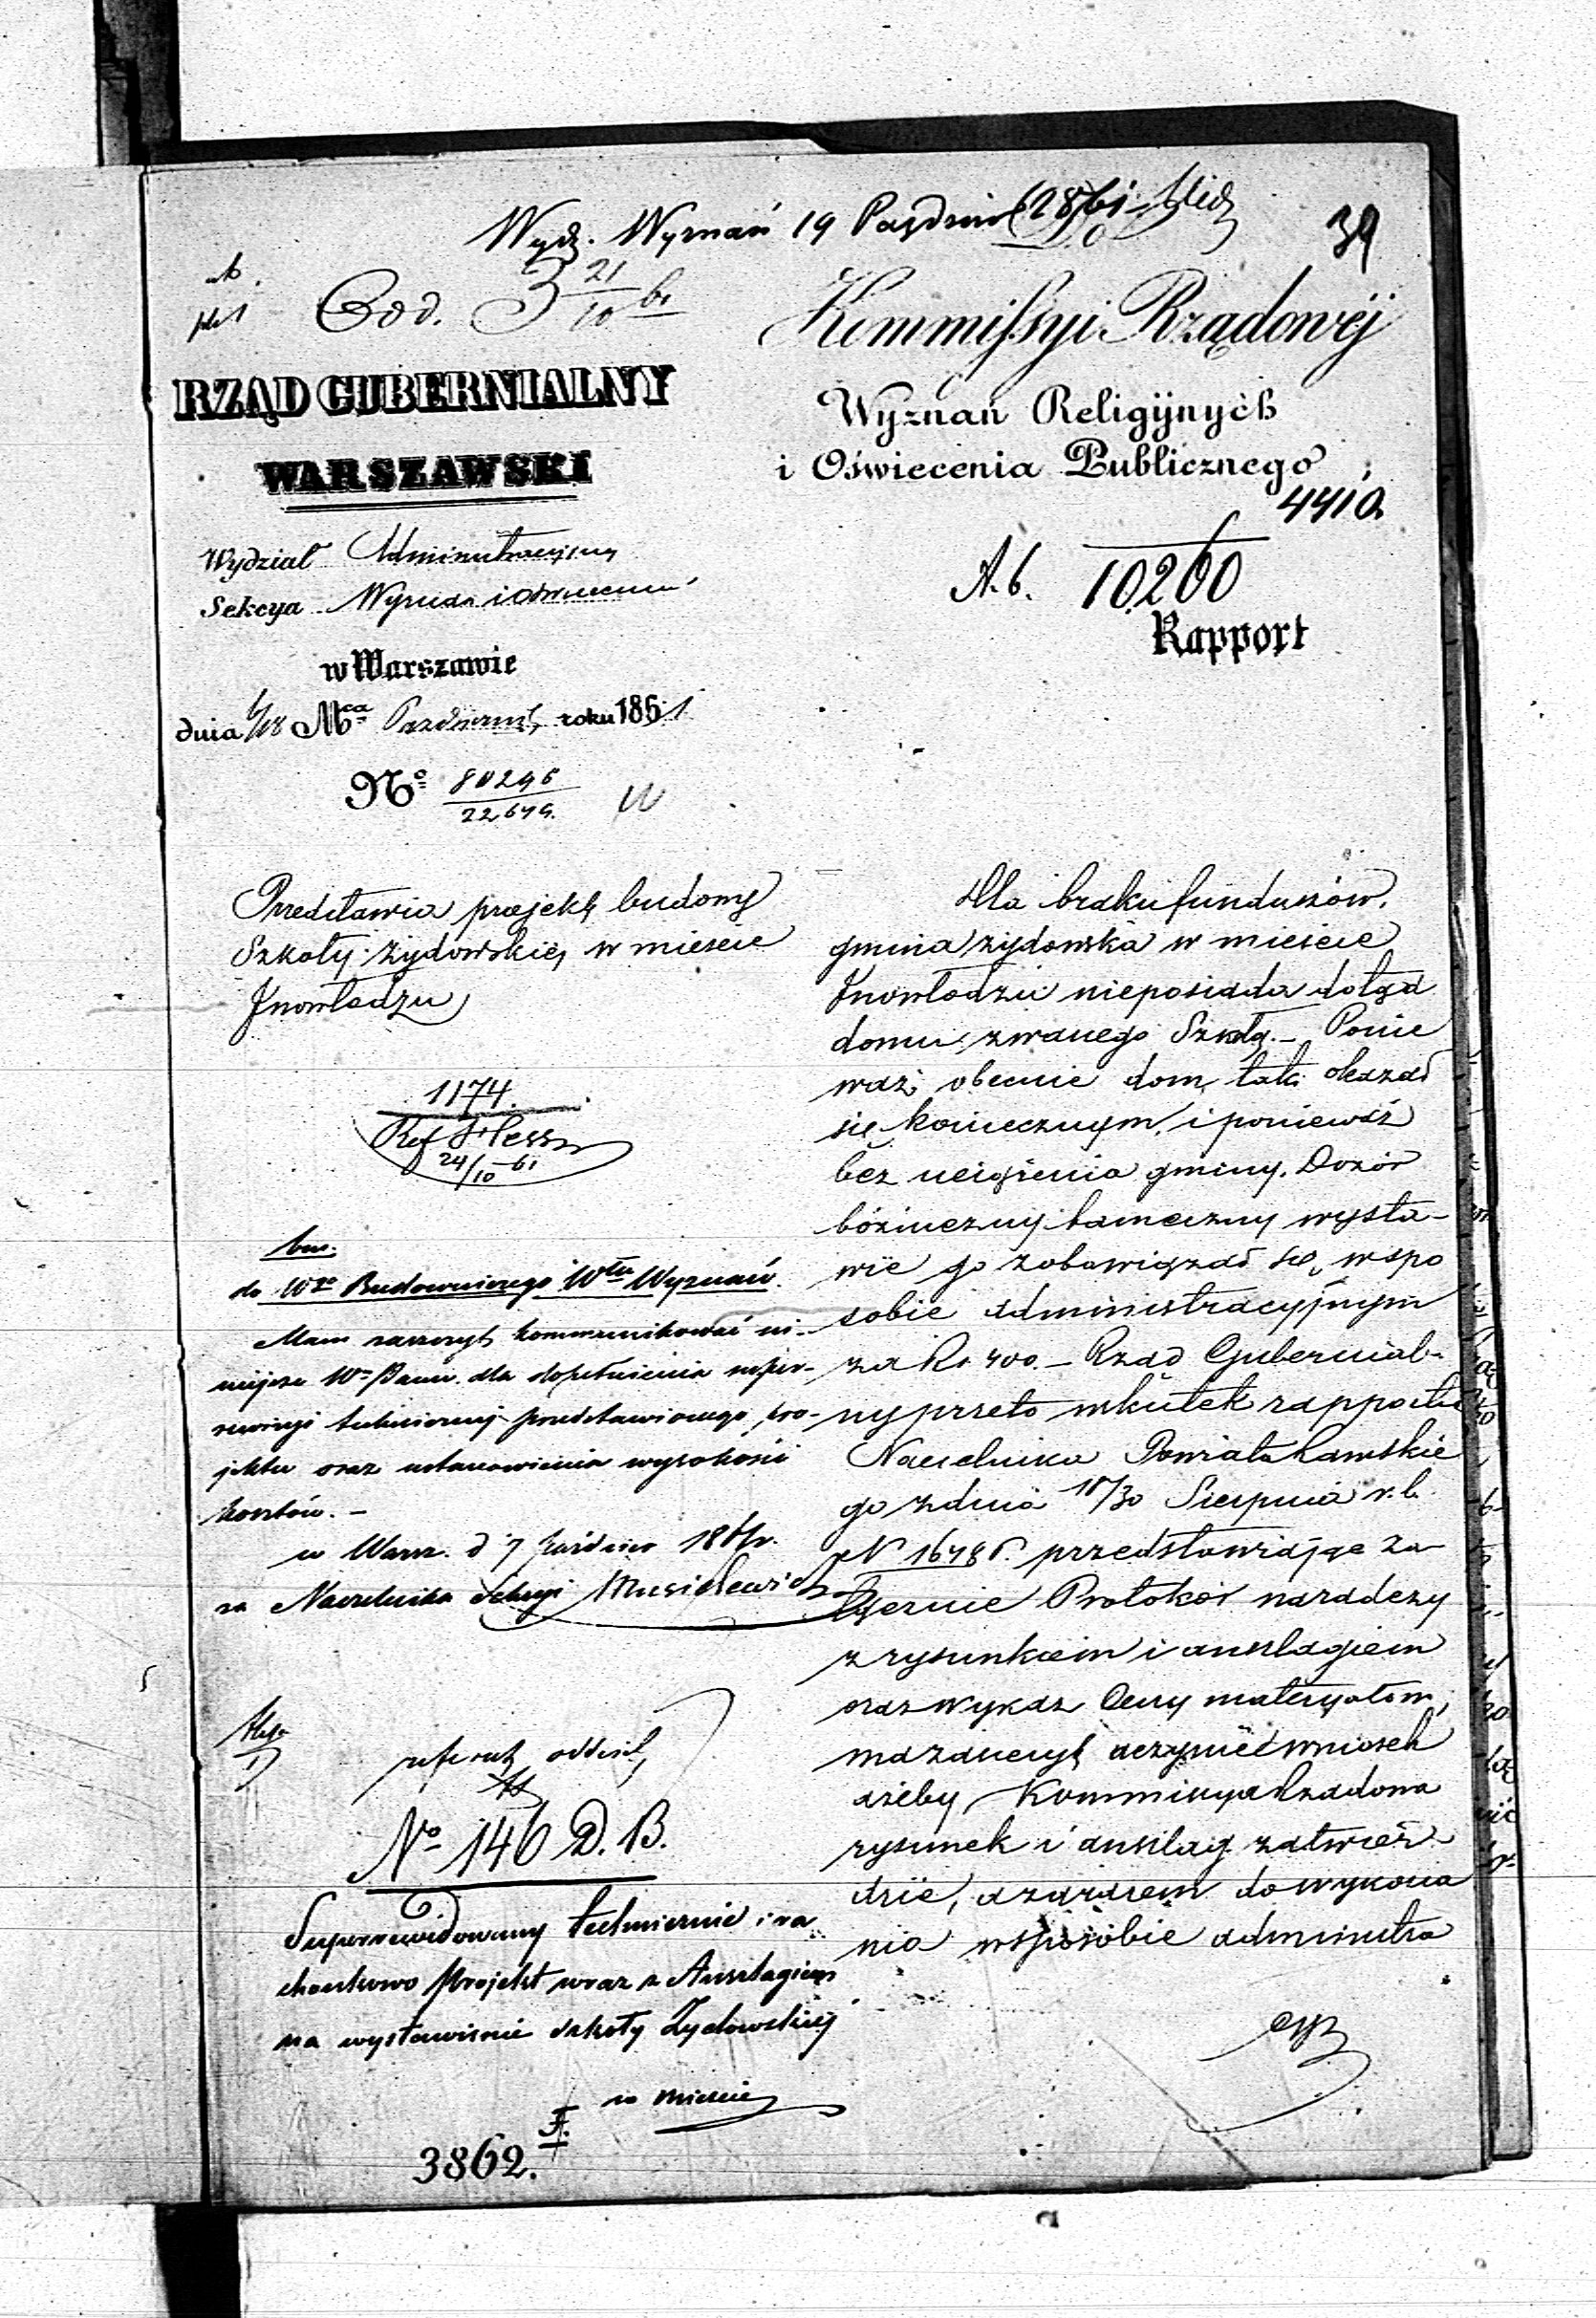 Wydz. Wyznań 19 Paździer
39
Kommissyi Rządowéj
Wyznań Religijnych
i Oświecenia Publicznego
4410.
A. b. 10260
Rapport
21
10
RZĄD GUBERNIALNY
WARSZAWSKI
Wydział Administracyjny
Sekcya Wyznań i Oświecenia
w Warszawie
dnia 6/18 Mca Październ. roku 1861
No 80246
22649.
Przedstawia projekt budowy
Szkoły żydowskiéj w mieście
Inowłodzu
1174.
Ref Hess
24/10 61
do Wgo Budowniczego Włu Wyznań.
Mam zaszczyt kommunikować ni-
niejsze Wu Panu dla dopełnienia super-
rewizyi technicznej przedstawionego pro-
jektu oraz ustanowienia wysokości
kosztów. –
w Warsz. d 7 Paździer 1861 r.
za Naczelnika Sekcyi
referat oddziel
No 146 D. B.
Superrewidowany technicznie i ra
chunkowo Projekt wraz z Anszlagiem
na wystawienie szkoły Żydowskiéj
w mieście
3862. I.
Dla braku funduszów,
gmina żydowska w mieście
Inowłodzu nieposiada dotąd
domu zwanego Szkołą. – Ponie
waż obecnie dom taki okazał
się koniecznym, i ponieważ
bez uciążenia gminy, Dozór
bóźniczny tameczny wysta-
wić go zobowiązał się, w spo
sobie administracyjnym
za Rs 400. – Rząd Gubernial-
ny przeto wskutek rapportu
Naczelnika Powiatu Rawskie
go z dnia 18/30 Sierpnia r. b.
N 16486. przedstawiając za
łącznie Protokół naradczy
z rysunkiem i anszlagiem
oraz wykaz Ceny materyałom,
ma zaszczyt uczynić wniosek
ażeby Kommissya Rządowa
rysunek i anszlag zatwier
dzić, a zarazem do wykona
nia w sposobie administra
cyj